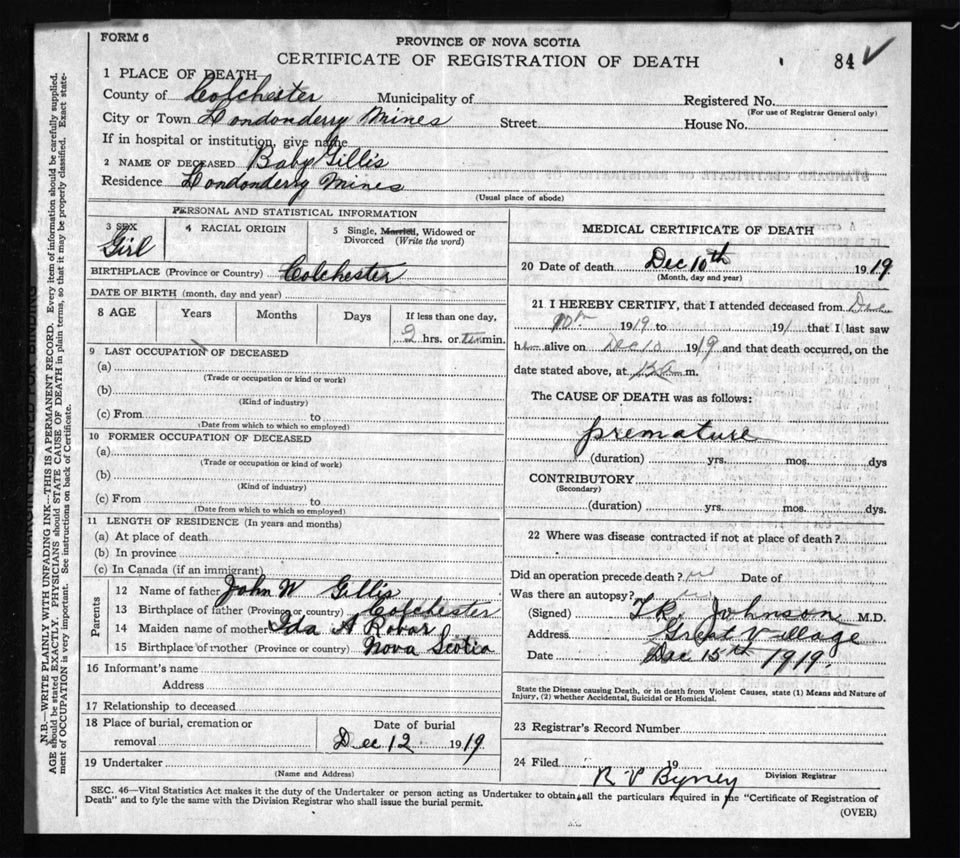 FORM 6
PROVINCE OF NOVA SCOTIA
CERTIFICATE OF REGISTRATION OF DEATH
84
1 PLACE OF DEATH
County of Colchester Municipality of Registered No.
(For use of Registrar General only)
City or Town Londonderry Mines Street House No.
If in hospital or institution, give name
2 NAME OF DECEASED Baby Gillis
Residence Londonderry Mines
(Usual place of abode)
PERSONAL AND STATISTICAL INFORMATION
3 SEX Girl
4 RACIAL ORIGIN
5 Single, Married, Widowed or Divorced (Write the word)
BIRTHPLACE (Province or Country) Colchester
DATE OF BIRTH (month, day and year)
8 AGE Years Months Days If less than one day,
2 hrs. or ten min.
9 LAST OCCUPATION OF DECEASED
(a)
(Trade or occupation or kind or work)
(b)
(Kind of industry)
(c) From to
(Date from which to which so employed)
10 FORMER OCCUPATION OF DECEASED
(a)
(Trade or occupation or kind of work)
(b)
(Kind of industry)
(c) From to
(Date from which to which so employed)
11 LENGTH OF RESIDENCE (In years and months)
(a) At place of death
(b) In province
(c) In Canada (if an immigrant)
Parents
12 Name of father John W Gillis
13 Birthplace of father (Province or country) Colchester
14 Maiden name of mother Ida A Robar
15 Birthplace of mother (Province or country) Nova Scotia
16 Informant's name
Address
17 Relationship to deceased
18 Place of burial, cremation or removal
Date of burial
Dec 12 1919
19 Undertaker
(Name and Address)
MEDICAL CERTIFICATE OF DEATH
20 Date of death Dec 10th 1919
(Month, day and year)
21 I HEREBY CERTIFY, that I attended deceased from
10th 1919 to 191 that I last saw
h alive on Dec 10 1919 and that death occurred, on the
date stated above, at m.
The CAUSE OF DEATH was as follows:
premature
(duration) yrs. mos. dys
CONTRIBUTORY
(Secondary)
(duration) yrs. mos. dys.
22 Where was disease contracted if not at place of death?
Did an operation precede death? Date of
Was there an autopsy?
(Signed) T.R. Johnson M.D.
Address Great Village
Date Dec 15th 1919.
State the Disease causing Death, or in death from Violent Causes, state (1) Means and Nature of
Injury, (2) whether Accidental, Suicidal or Homicidal.
23 Registrar's Record Number
24 Filed 19
R P Byrney
Division Registrar
SEC. 46—Vital Statistics Act makes it the duty of the Undertaker or person acting as Undertaker to obtain all the particulars required in the "Certificate of Registration of
Death" and to fyle the same with the Division Registrar who shall issue the burial permit.
(OVER)
MARGIN RESERVED FOR BINDING
N.B.—WRITE PLAINLY WITH UNFADING INK—THIS IS A PERMANENT RECORD. Every item of information should be carefully supplied.
AGE should be stated EXACTLY. PHYSICIANS should STATE CAUSE OF DEATH in plain terms, so that it may be properly classified. Exact state-
ment of OCCUPATION is very important. See instructions on back of Certificate.